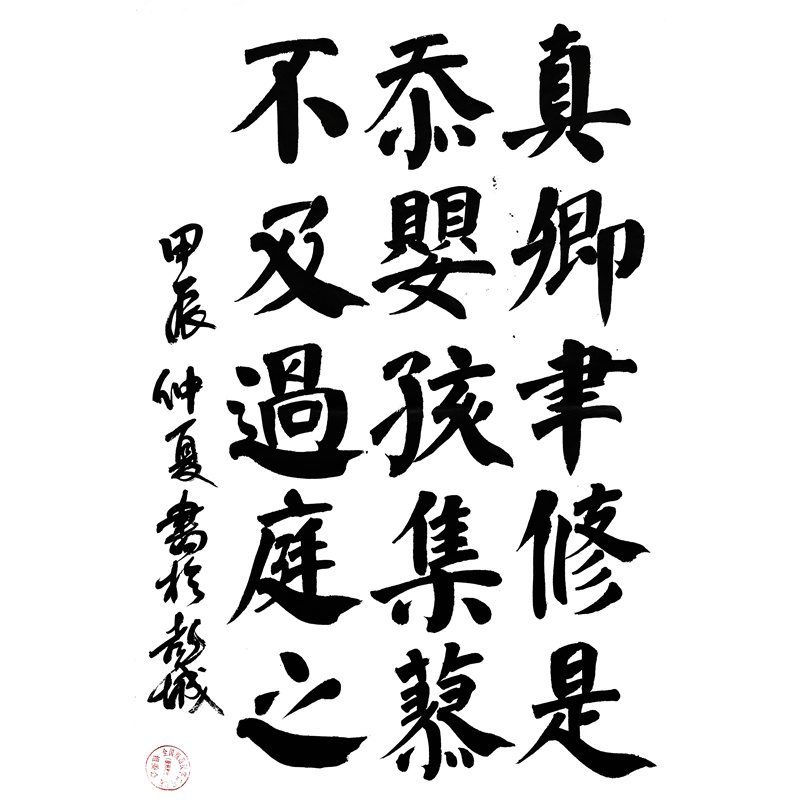 真卿聿修是
忝嬰孩集蓼
不及過庭之
甲辰仲夏書於彭城